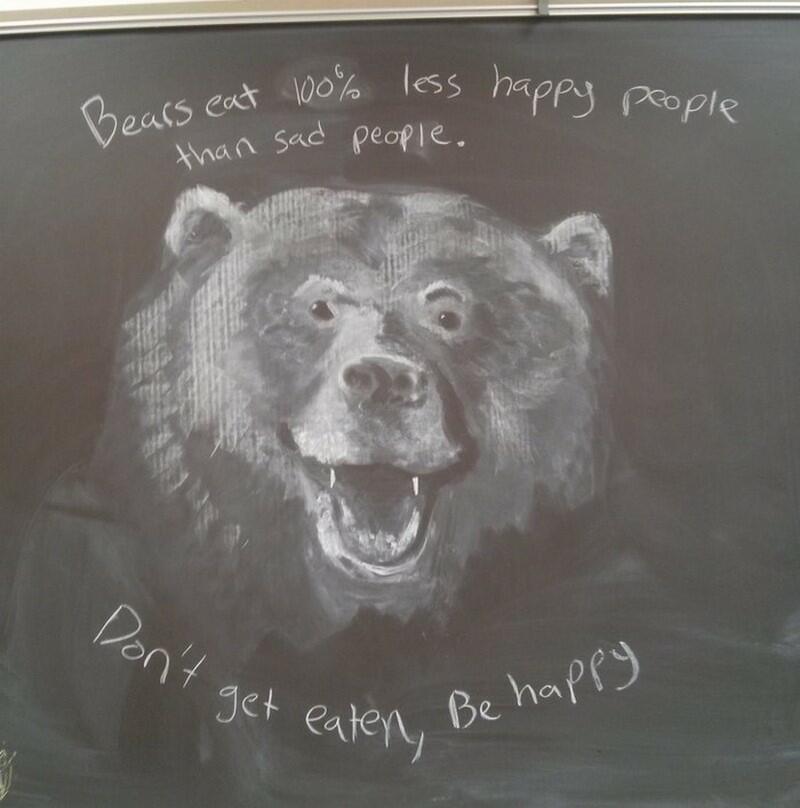 Bears eat 100% less happy people
than sad people.
Don't get eaten, Be happy